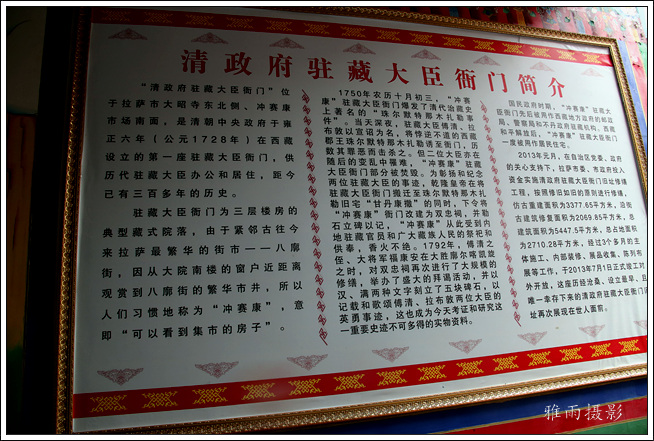 清政府驻藏大臣衙门简介
"清政府驻藏大臣衙门"位
于拉萨市大昭寺东北侧、冲赛康
市场南面,是清朝中央政府于雍
正六年(公元1728年)在西藏
设立的第一座驻藏大臣衙门,供
历代驻藏大臣办公和居住,距今
已有三百多年的历史。
驻藏大臣衙门为三层楼房的
典型藏式院落,由于紧邻古往今
来拉萨最繁华的街市——八廓
街,因从大院南楼的窗户近距离
观赏到八廓街的繁华市井,所以
人们习惯地称为"冲赛康",意
即"可以看到集市的房子"。
1750年农历十月初三,"冲赛
康"驻藏大臣衙门爆发了清代治藏史
上著名的"珠尔默特那木扎勒事
件"。当天深夜,驻藏大臣傅清、拉
布敦以宣诏为名,将悖逆不道的西藏
郡王珠尔默特那木扎勒诱至衙门,历
数其罪恶而击杀之。但二位大臣亦在
随后的变乱中罹难,"冲赛康"驻藏
大臣衙门部分被焚毁。为彰扬和纪念
两位驻藏大臣的事迹,乾隆皇帝在将
驻藏大臣衙门搬迁至珠尔默特那木扎
勒旧宅"甘丹康撒"的同时,下令将
"冲赛康"衙门改建为双忠祠,并勒
石立碑以记,"冲赛康"从此受到内
地驻藏官员和广大藏族人民的祭祀和
供奉,香火不绝。1792年,傅清之
侄、大将军福康安在大胜廓尔喀凯旋
之时,对双忠祠再次进行了大规模的
修缮,举办了盛大的拜谒活动,并以
汉、满两种文字刻立了五块碑石,以
记载和歌颂傅清、拉布敦两位大臣的
英勇事迹,这也成为今天考证和研究这
一重要史迹不可多得的实物资料。
国民政府时期,"冲赛康"驻藏大
臣衙门先后被用作西藏地方政府的邮政
局、警察局和不丹政府驻藏机构。西藏
和平解放后,"冲赛康"驻藏大臣衙门
一度被用作居民住宅。
2013年元月,在自治区党委、政府
的关心支持下,拉萨市委、市政府投入
资金实施清政府驻藏大臣衙门旧址修缮
工程,按照修旧如旧的原则进行修缮,
仿古重建面积为3377.65平方米,沿街
古建筑修复面积为2069.85平方米,总
建筑面积为5447.5平方米,总占地面积
为2710.28平方米,经过3个多月的主
体施工、内部装修、展品收集、陈列布
展等工作,于2013年7月1日正式竣工对
外开放,这座历经沧桑、设立最早、且
唯一幸存下来的清政府驻藏大臣衙门旧
址再次展现在世人面前。
雅雨摄影